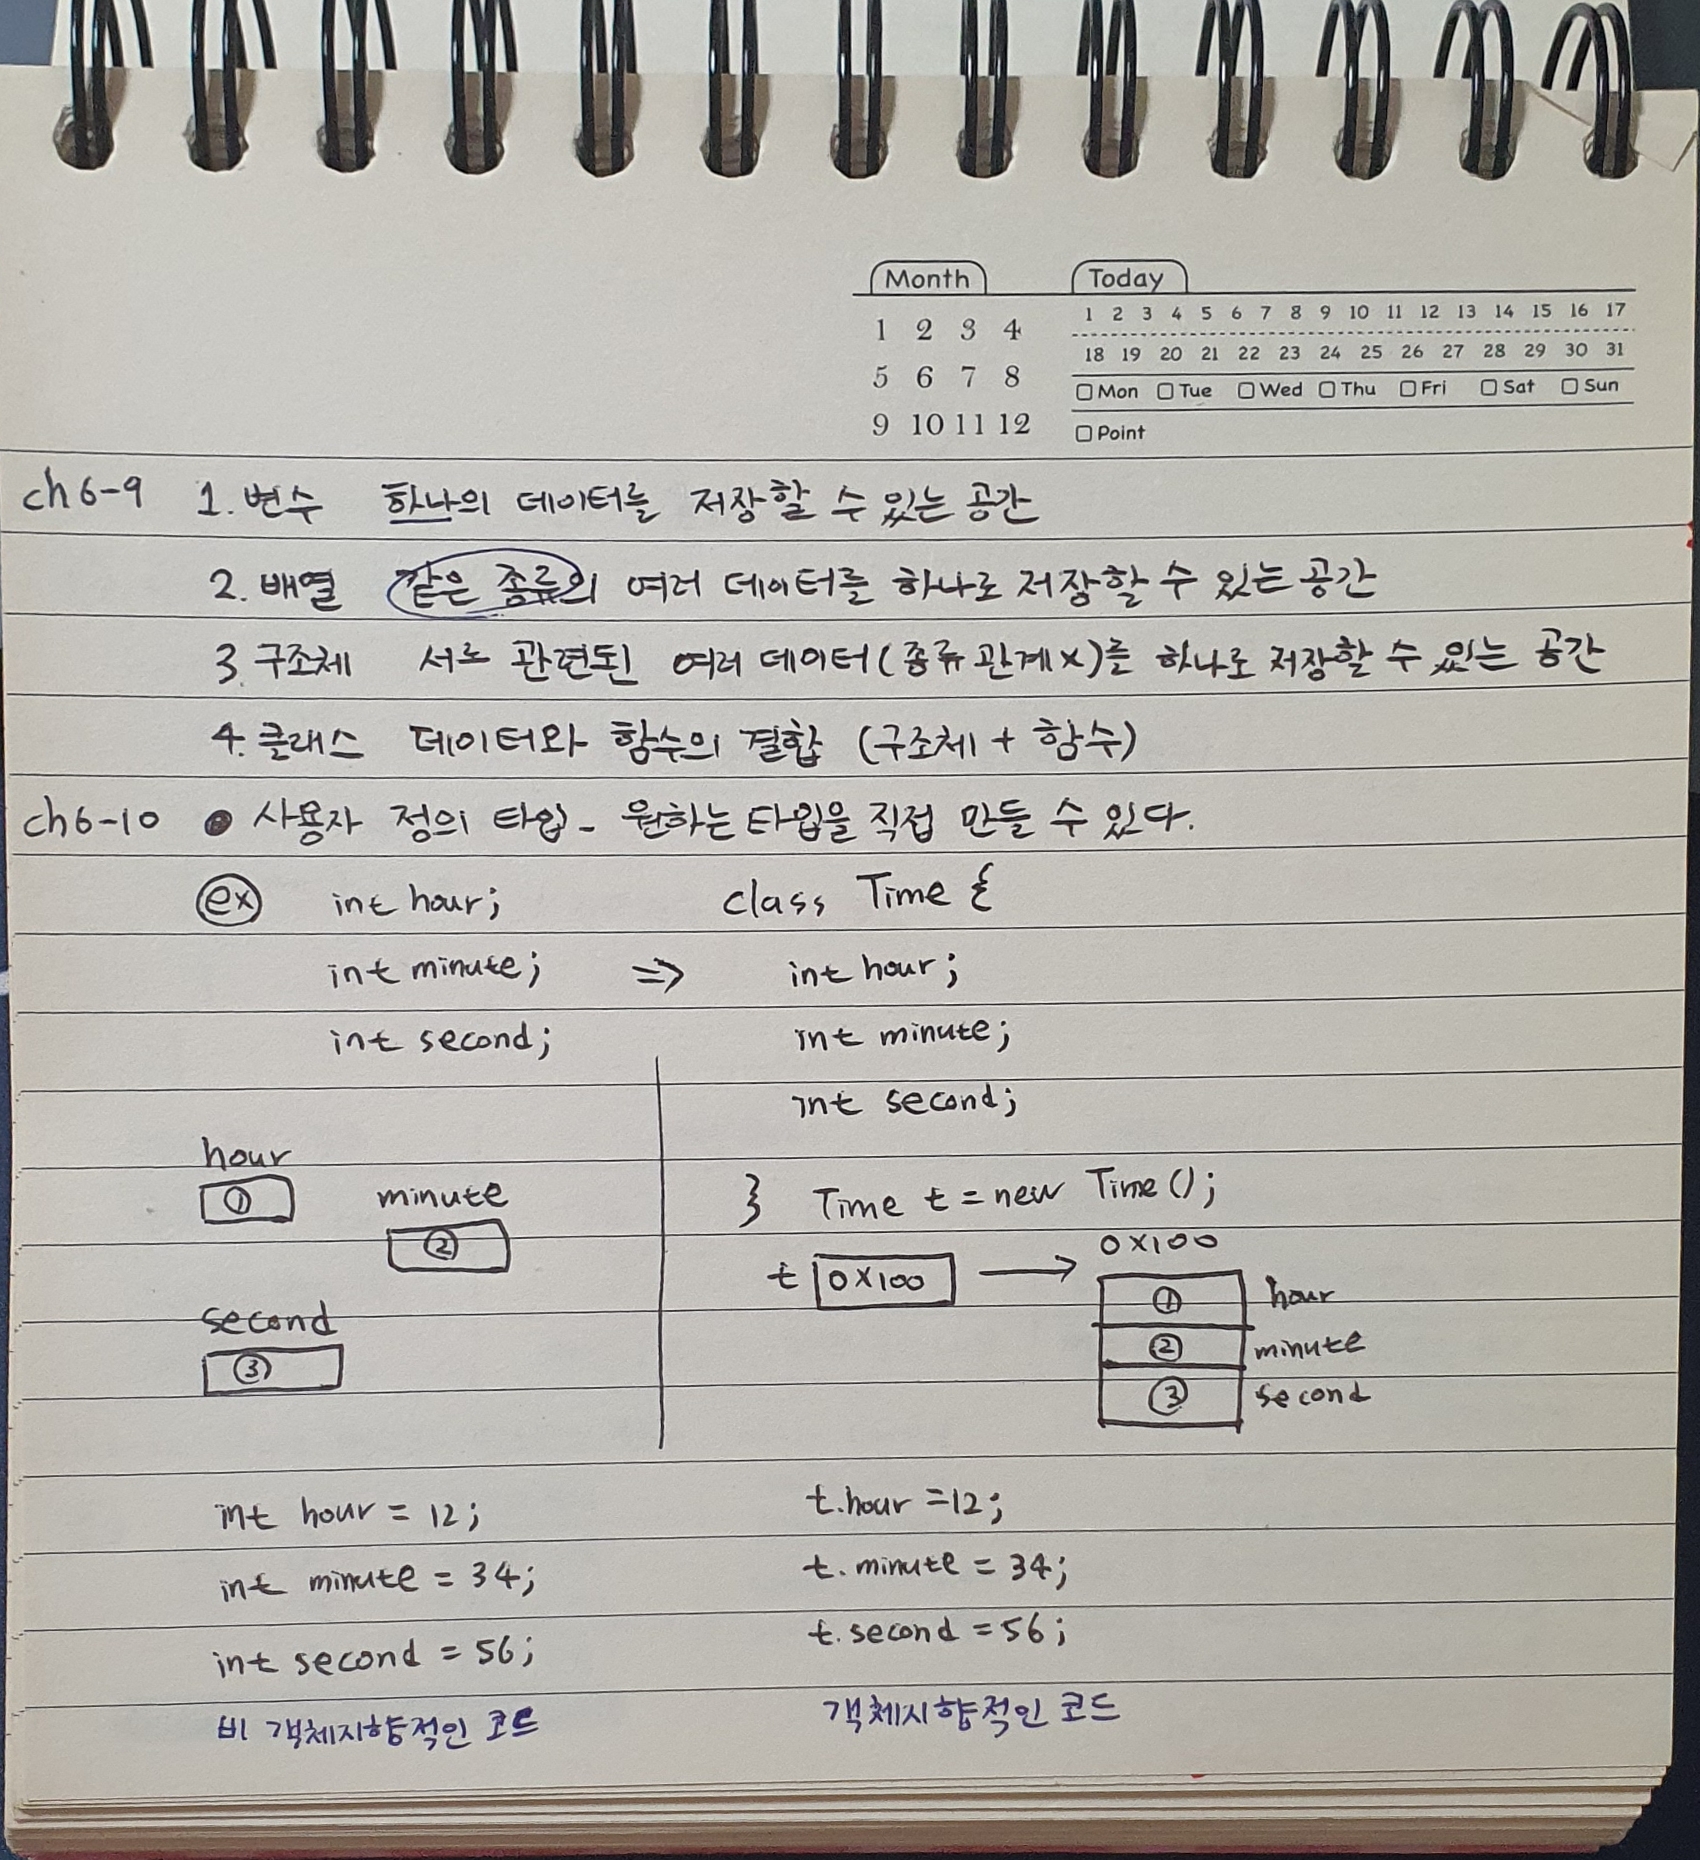 Month Today
1 2 3 4 5 6 7 8 9 10 11 12 13 14 15 16 17
1 2 3 4
18 19 20 21 22 23 24 25 26 27 28 29 30 31
5 6 7 8
Mon Tue Wed Thu Fri Sat Sun
9 10 11 12
Point
ch6-9 1. 변수 하나의 데이터를 저장할 수 있는 공간
2. 배열 같은 종류의 여러 데이터를 하나로 저장할 수 있는 공간
3. 구조체 서로 관련된 여러 데이터(종류 관계x)를 하나로 저장할 수 있는 공간
4. 클래스 데이터와 함수의 결합 (구조체 + 함수)
ch6-10 ● 사용자 정의 타입 - 원하는 타입을 직접 만들 수 있다.
ex int hour; class Time {
int minute; => int hour;
int second; int minute;
int second;
hour
① minute } Time t = new Time();
② 0x100
t 0x100 → ① hour
second ② minute
③ ③ second
int hour = 12; t.hour = 12;
int minute = 34; t.minute = 34;
int second = 56; t.second = 56;
비 객체지향적인 코드 객체지향적인 코드